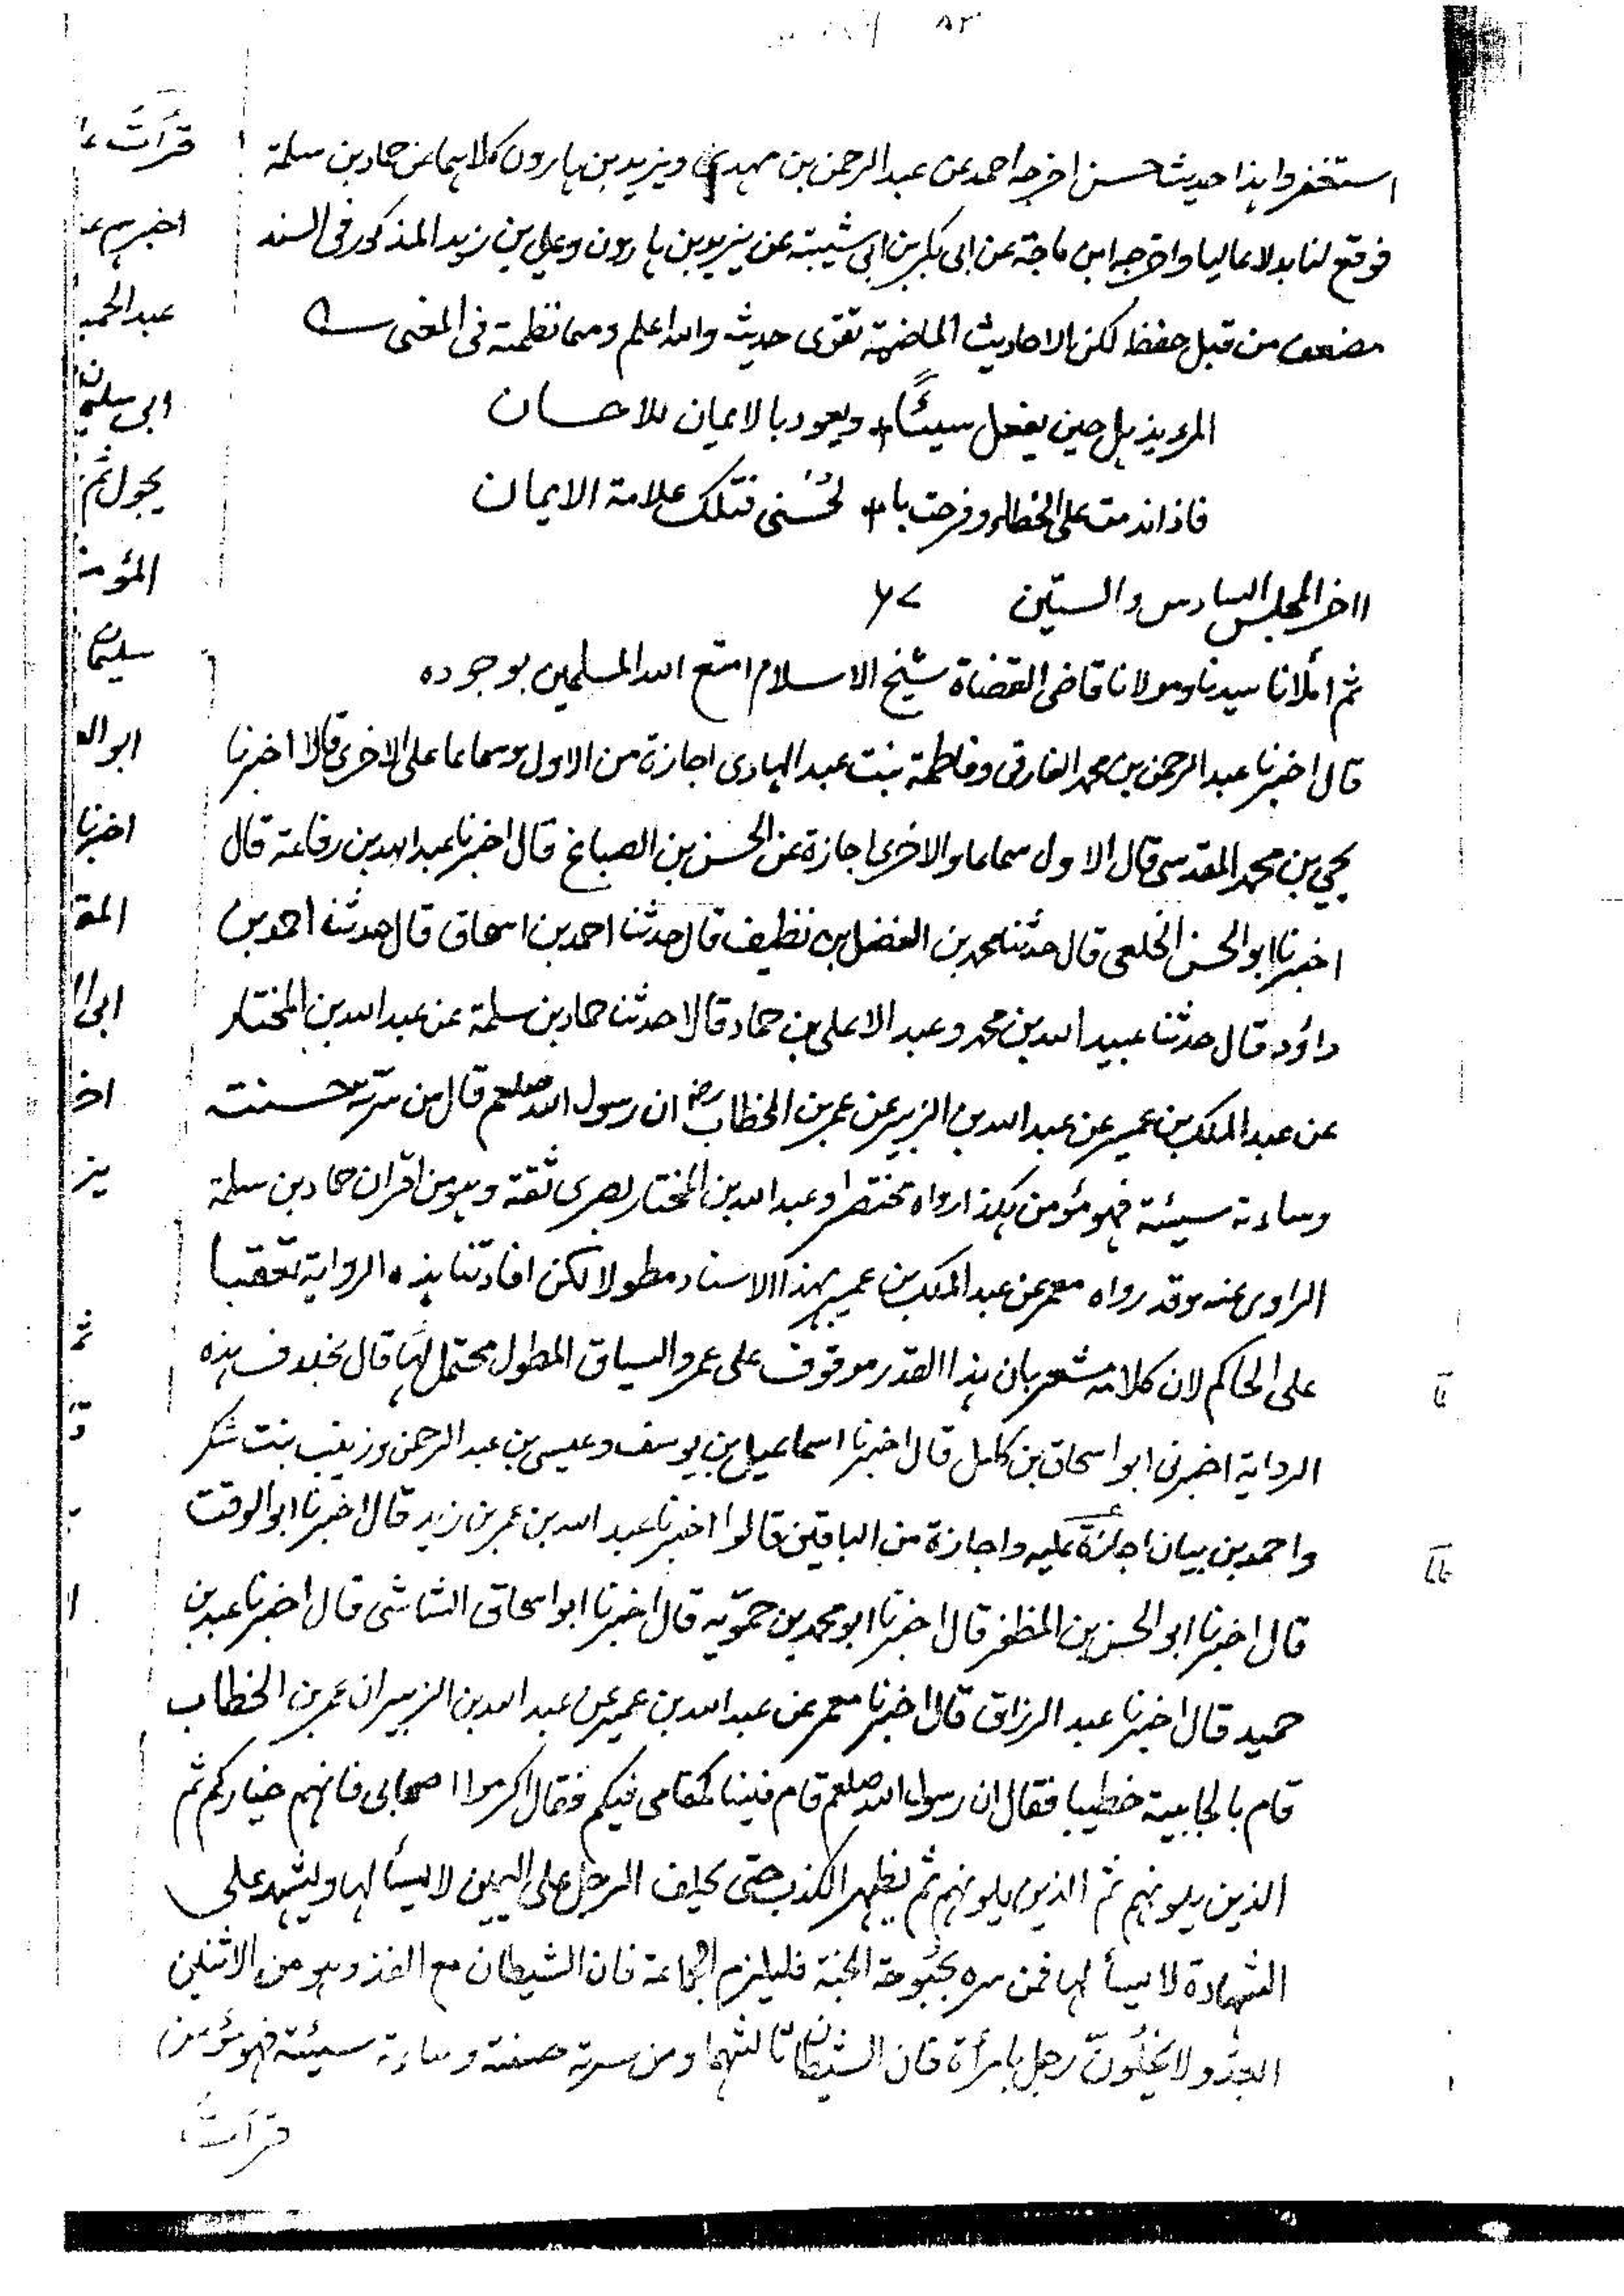 ٨٢
استغفروا هذا حديث حسن اخرجه احمد عن عبد الرحمن بن مهدي ويزيد بن هارون كلاهما عن حماد بن سلمة
فوقع لنا بدلا عاليا واخرجه ابن ماجة عن ابى بكر بن ابى شيبة عن يزيد بن هارون وعلي بن زيد المذكور فى السند
مضعف من قبل حفظه لكن الاحاديث الماضية تقوى حديثه والله اعلم ومما نظمته فى المعنى
المرء يذهل حين يفعل سيئًا + ويعود بالايمان للاحسان
فاذا ندمت على الخطاء وفرحت با + لحُسنى فتلك علامة الايمان
ااخر المجلس السادس والستين ٦٧
ثم املأنا سيدنا ومولانا قاضى القضاة شيخ الاسلام امتع الله المسلمين بوجوده
قال اخبرنا عبد الرحمن بن محمد الفارقى وفاطمة بنت عبد الهادى اجازة من الاول وسماعا على الاخرى قالا اخبرنا
يحيى بن محمد المقدسى قال الاول سماعا والاخرى اجازة عن الحسن بن الصباغ قال اخبرنا عبد الله بن رفاعة قال
اخبرنا ابو الحسن الخلعى قال حدثنا محمد بن الفضل بن نظيف قال حدثنا احمد بن اسحاق قال حدثنا احمد بن
داؤد قال حدثنا عبيد الله بن محمد وعبد الاعلى بن حماد قالا حدثنا حماد بن سلمة عن عبد الله بن المختار
عن عبد الملك بن عمير عن عبد الله بن الزبير عن عمر بن الخطاب رضـ ان رسول الله صلعم قال من سرته حسنته
وساءته سيئة فهو مؤمن هكذا رواه مختصرا وعبد الله بن المختار بصرى ثقة وهو من اقران حماد بن سلمة
الراوى عنه وقد رواه معمر عن عبد الملك بن عمير بهذا الاسناد مطولا لكن افادتنا هذه الرواية تعقبا
على الحاكم لان كلامه مشعر بان هذا القدر موقوف على عمر والسياق المطول محتمل لها قال بخلاف هذه
الرواية اخبرنى ابو اسحاق بن كامل قال اخبرنا اسماعيل بن يوسف وعيسى بن عبد الرحمن وزينب بنت شكر
واحمد بن بيان اجازة عليه واجازة من الباقين قالوا اخبرنا عبد الله بن عمر بن زيد قال اخبرنا ابو الوقت
قال اخبرنا ابو الحسن بن المظفر قال اخبرنا ابو محمد بن حمّويه قال اخبرنا ابو اسحاق الشاشى قال اخبرنا عبد بن
حميد قال اخبرنا عبد الرزاق قال اخبرنا معمر عن عبد الله بن عمير عن عبد الله بن الزبير ان عمر بن الخطاب
قام بالجابية خطيبا فقال ان رسول الله صلعم قام فينا كمقامى فيكم فقال اكرموا اصحابى فانهم خياركم ثم
الذين يلونهم ثم الذين يلونهم ثم يظهر الكذب حتى يحلف الرجل على اليمين لا يسألها ويشهد على
الشهادة لا يسألها فمن سره بحبُوحة الجنة فليلزم الجماعة فان الشيطان مع الفذ وهو من الاثنين
ابعد ولا يخلُونّ رجل بامرأة فان الشيطان ثالثهما ومن سرته حسنة وساءته سيئة فهو مؤمن
قرأت
قرأتُ
اخبرهم
عبد الحميد
ابى سليمان
يحول ثم
المؤمن
سليمان
اخبرنا